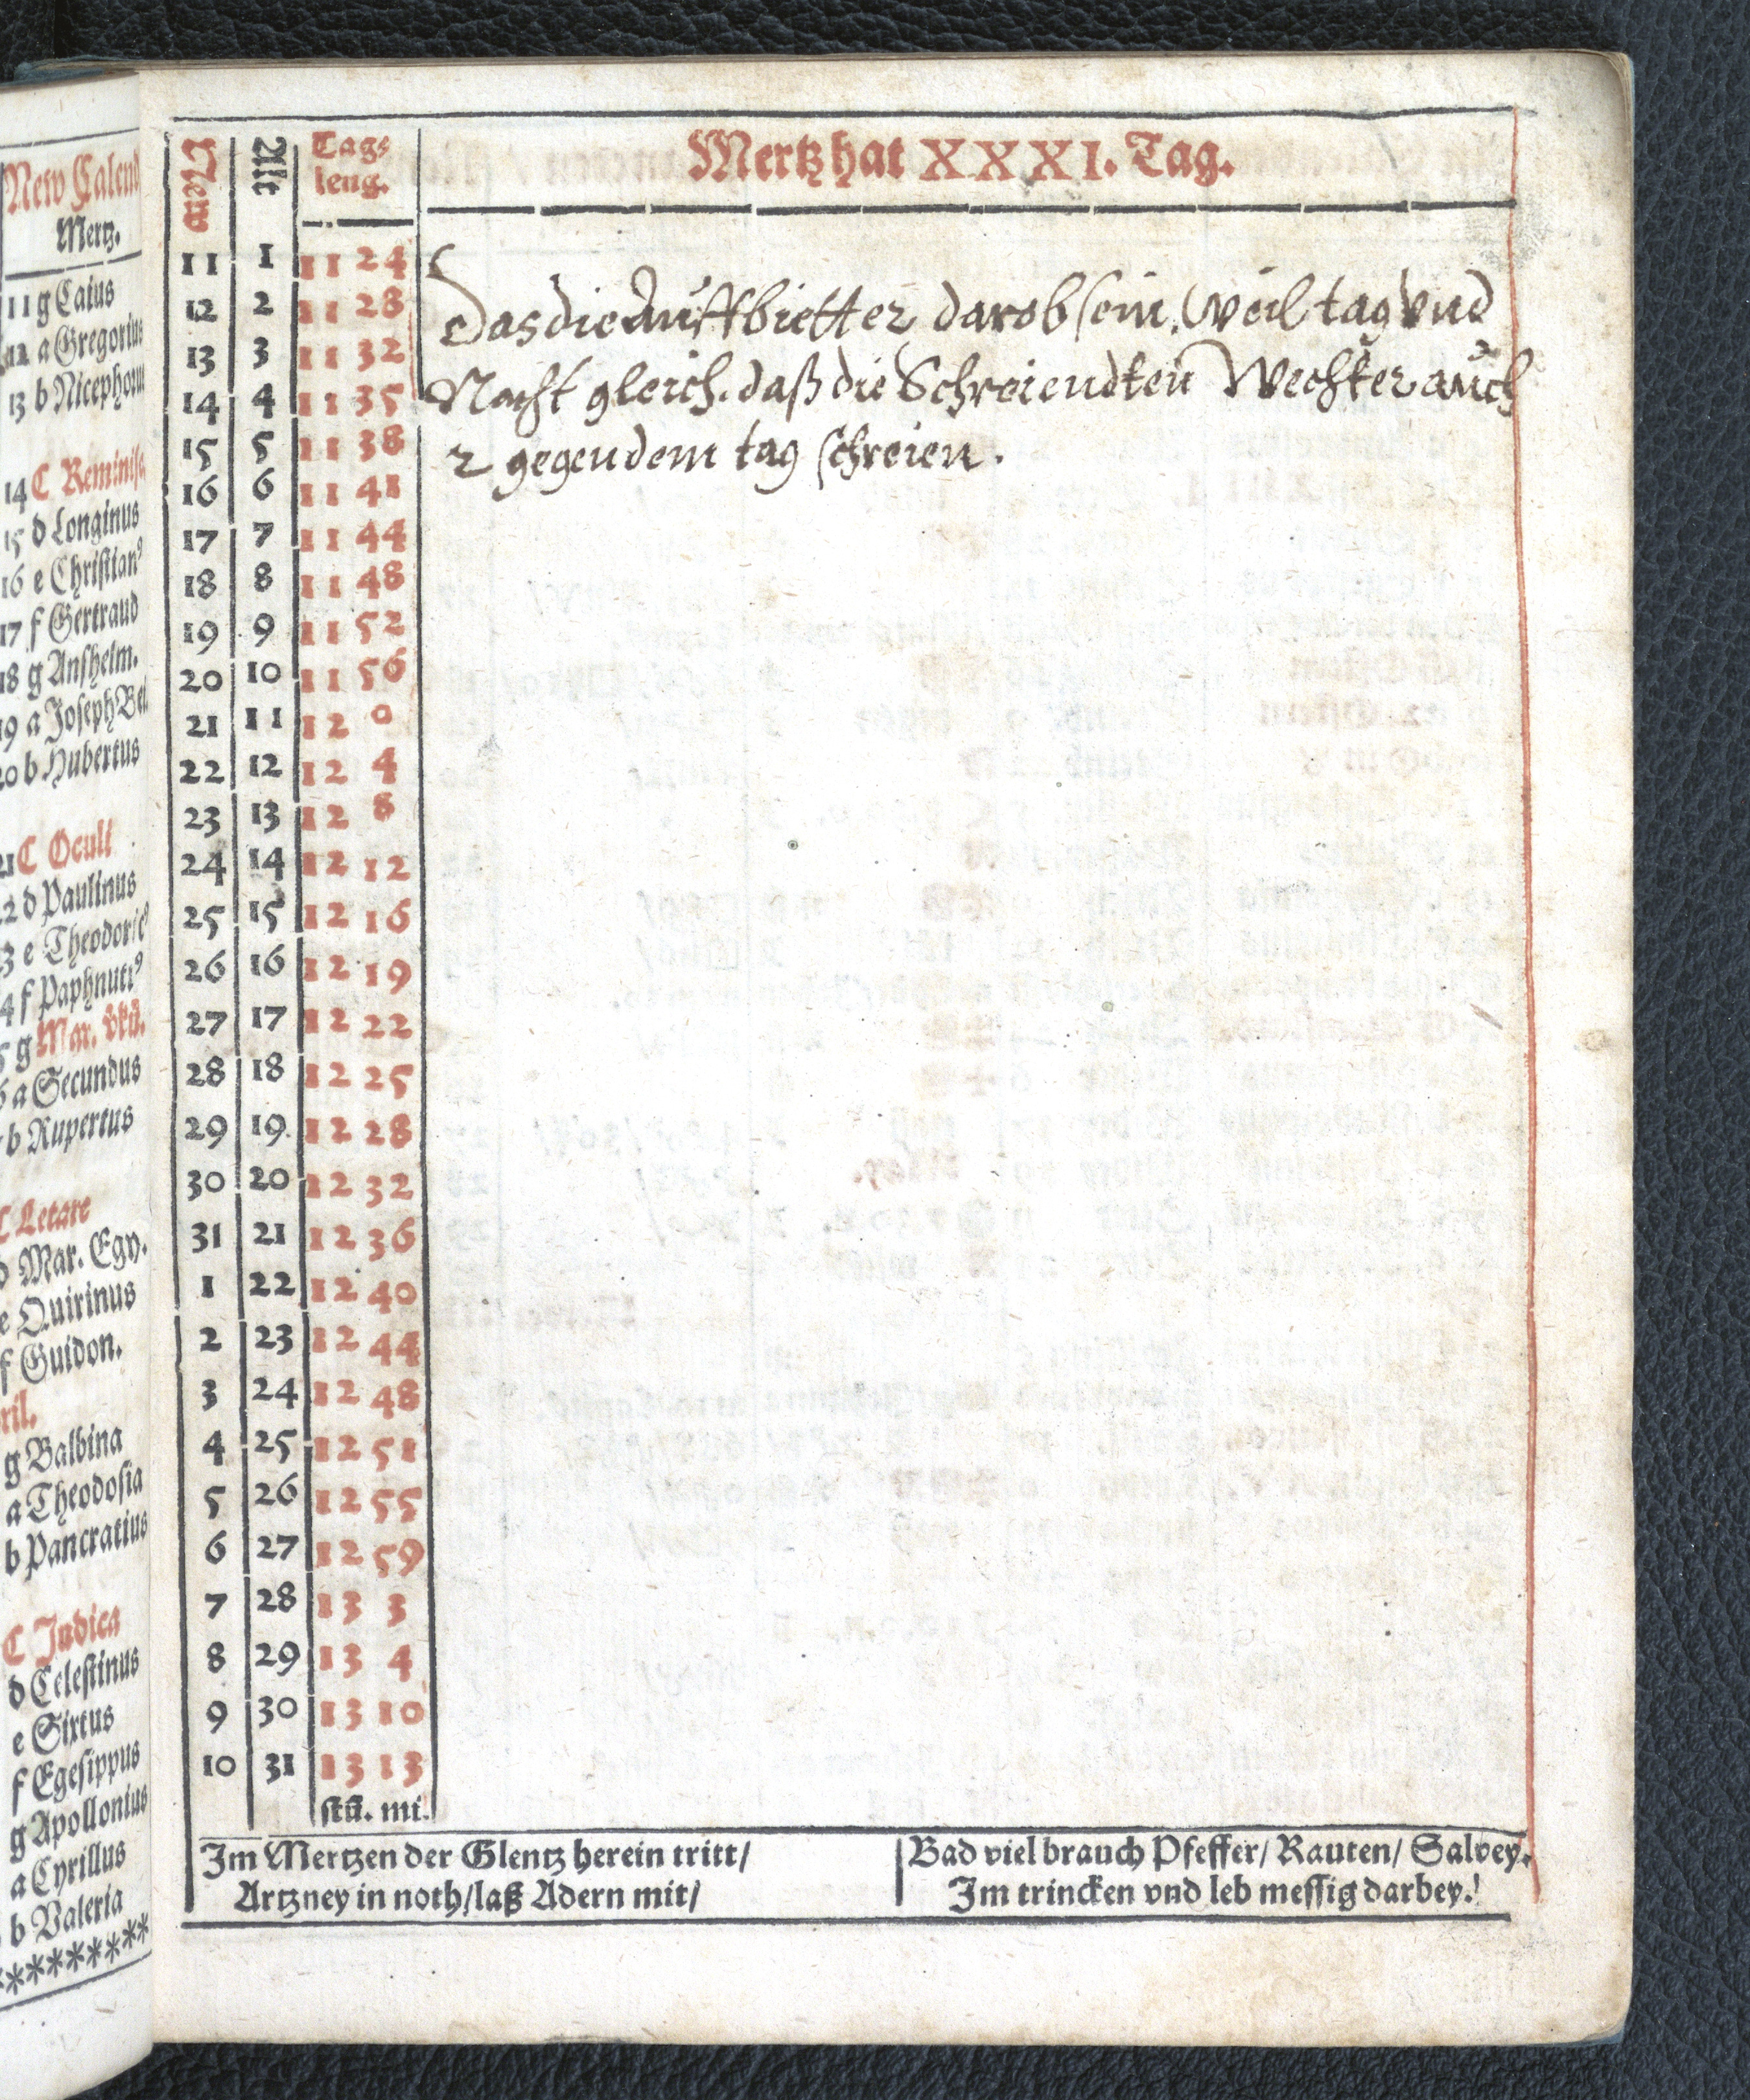 New Calend
Mertz.
11 g Caius
12 a Gregorius
13 b Nicephorus
14 C Reminisc
15 d Longinus
16 e Christian⁹
17 f Gertraud
18 g Anshelm.
19 a Joseph Be
20 b Hubertus
21 C Oculi
22 d Paulinus
3 e Theodoric⁹
4 f Paphnuti⁹
5 g Mar. vkü.
6 a Secundus
b Rupertus
C Letare
d Mar. Egy.
e Quirinus
f Guidon.
ril.
g Balbina
a Theodosia
b Pancratius
C Judica
d Celestinus
e Sixtus
f Egesippus
g Apollonius
a Cyrillus
b Valeria
*********
Mertz hat XXXI. Tag.
New Alt Tags
leng.
11 1 11 24
12 2 11 28
13 3 11 32
14 4 11 35
15 5 11 38
16 6 11 41
17 7 11 44
18 8 11 48
19 9 11 52
20 10 11 56
21 11 12 0
22 12 12 4
23 13 12 8
24 14 12 12
25 15 12 16
26 16 12 19
27 17 12 22
28 18 12 25
29 19 12 28
30 20 12 32
31 21 12 36
1 22 12 40
2 23 12 44
3 24 12 48
4 25 12 51
5 26 12 55
6 27 12 59
7 28 13 3
8 29 13 4
9 30 13 10
10 31 13 13
stü. mi.
Das die Auffbietter darob sein. Weil tag vnd
Nacht gleich. daß die Schreiendten Wechter auch
2 gegen dem tag schreien.
Im Mertzen der Glentz herein tritt/
Artzney in noth/laß Adern mit/
Bad viel brauch Pfeffer/ Rauten/ Salvey.
Im trincken vnd leb messig darbey.